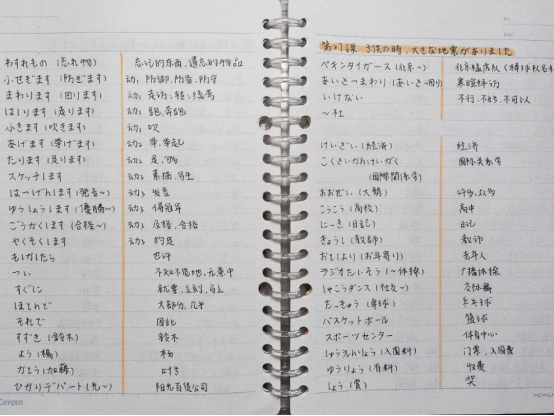 わすれもの (忘れ物) 忘记的东西,遗忘的物品
ふせぎます (防ぎます) 动1 防御,防备,防守
まわります (回ります) 动1 走访;转;绕弯
はしります (走ります) 动1 跑,奔跑
ふきます (吹きます) 动1 吹
あげます (挙げます) 动2 举,举起
たります (足ります) 动2 足,够
スケッチします 动3 素描,写生
はつげんします (発言~) 动3 发言
ゆうしょうします (優勝~) 动3 得冠军
ごうかくします (合格~) 动3 及格,合格
やくそくします 动3 约定
もしかしたら 也许
つい 不知不觉地,无意中
すぐに 就要,立刻,马上
ほとんど 大部分,几乎
それで 因此
すずき (鈴木) 铃木
よう (楊) 杨
かとう (加藤) 加藤
ひかりデパート (光~) 阳光百货公司
Campus
第27課 子供の時,大きな地震がありました
ペキンタイガース (北京~) 北京猛虎队
あいさつまわり (あいさつ回り) 寒暄拜访
いけない 不行,不可以
~社
けいざい (経済) 经济
こくさいかんけいがく 国际关系学
(国際関係学)
おおぜい (大勢) 众多
こうこう (高校) 高中
にっき (日記) 日记
きょうし (教師) 教师
おとしより (お年寄り) 老年人
ラジオたいそう (~体操) 广播体操
しゃこうダンス (社交~) 交际舞
たっきゅう (卓球) 乒乓球
バスケットボール 篮球
スポーツセンター 体育中心
にゅうえんりょう (入園料) 门票,入园费
ゆうりょう (有料) 收费
しょう (賞) 奖